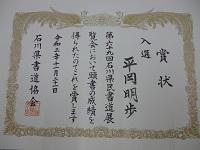 賞状
入選
平岡明歩
第六九回石川県民書道展
覧会において頭書の成績を
得られたのでこれを賞します
令和五年十一月十二日
石川県書道協会